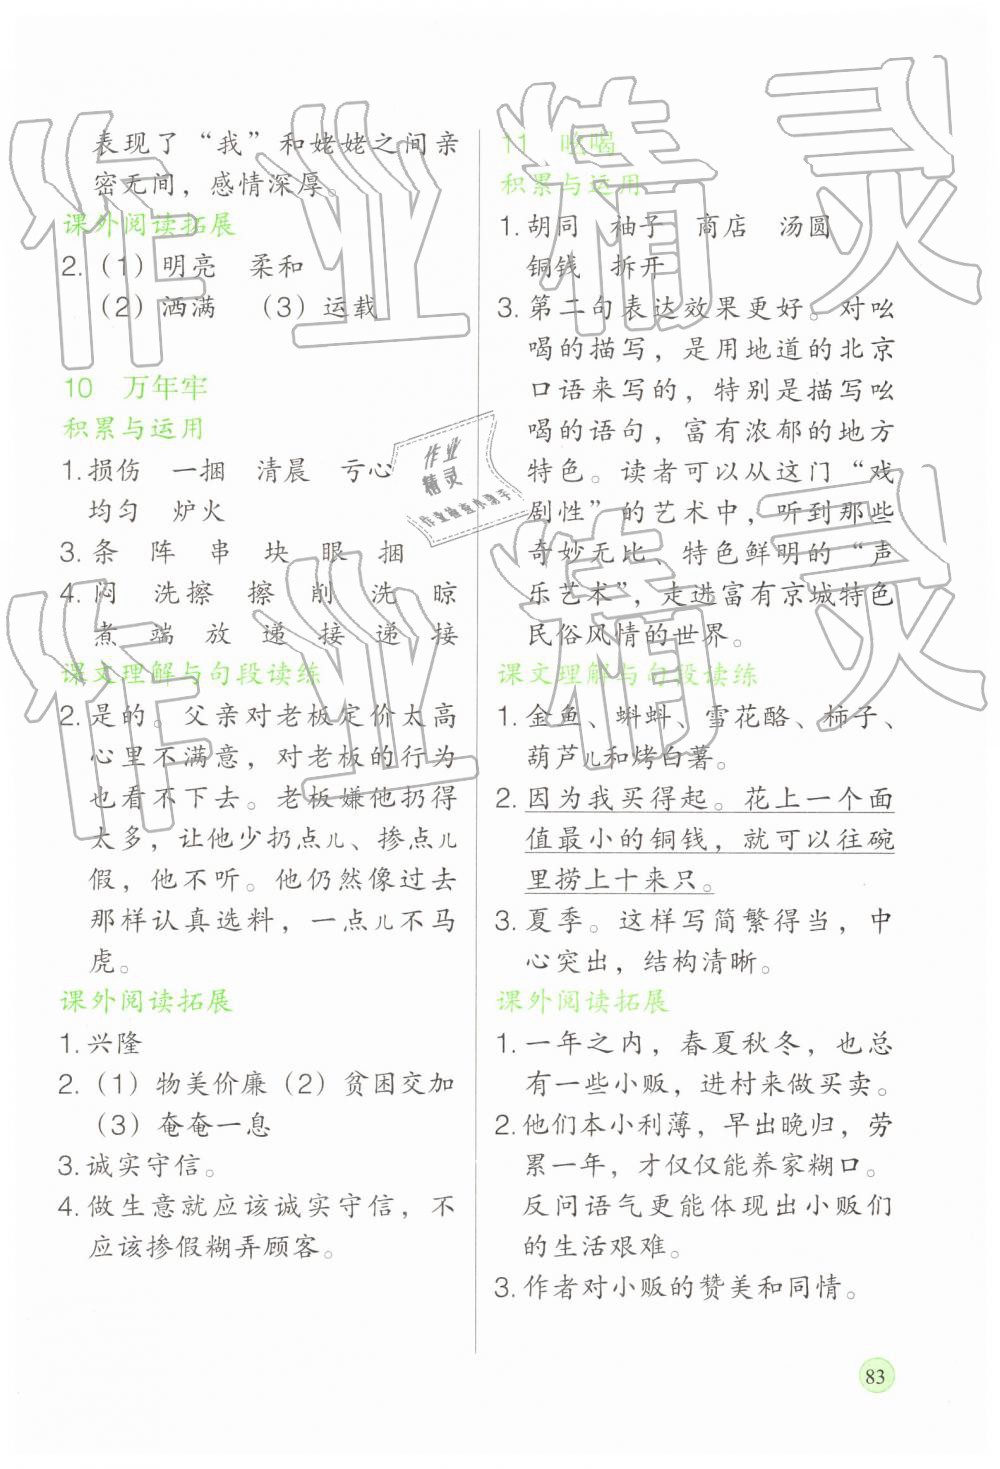 表现了“我”和姥姥之间亲
密无间，感情深厚。
课外阅读拓展
2.（1）明亮　柔和
（2）洒满　（3）运载
10　万年牢
积累与运用
1. 损伤　一捆　清晨　亏心
均匀　炉火
3. 条　阵　串　块　眼　捆
4. 闷　洗擦　擦　削　洗　晾
煮　端　放　递　接　递　接
课文理解与句段读练
2. 是的。父亲对老板定价太高
心里不满意，对老板的行为
也看不下去。老板嫌他扔得
太多，让他少扔点儿、掺点儿
假，他不听。他仍然像过去
那样认真选料，一点儿不马
虎。
课外阅读拓展
1. 兴隆
2.（1）物美价廉（2）贫困交加
（3）奄奄一息
3. 诚实守信。
4. 做生意就应该诚实守信，不
应该掺假糊弄顾客。
11　吆喝
积累与运用
1. 胡同　袖子　商店　汤圆
铜钱　拆开
3. 第二句表达效果更好。对吆
喝的描写，是用地道的北京
口语来写的，特别是描写吆
喝的语句，富有浓郁的地方
特色。读者可以从这门“戏
剧性”的艺术中，听到那些
奇妙无比、特色鲜明的“声
乐艺术”，走进富有京城特色
民俗风情的世界。
课文理解与句段读练
1. 金鱼、蝌蚪、雪花酪、柿子、
葫芦儿和烤白薯。
2. 因为我买得起。花上一个面
值最小的铜钱，就可以往碗
里捞上十来只。
3. 夏季。这样写简繁得当，中
心突出，结构清晰。
课外阅读拓展
1. 一年之内，春夏秋冬，也总
有一些小贩，进村来做买卖。
2. 他们本小利薄，早出晚归，劳
累一年，才仅仅能养家糊口。
反问语气更能体现出小贩们
的生活艰难。
3. 作者对小贩的赞美和同情。
83
作业精灵
作业精灵
作业
精灵
作业检查小助手